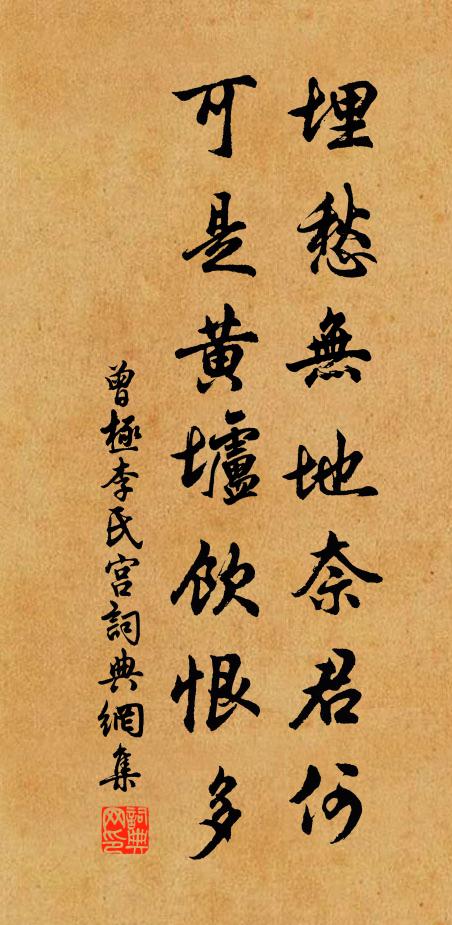 埋愁無地奈君何
可是黃壚飲恨多
曾極李氏宮詞典網集
詞典網印